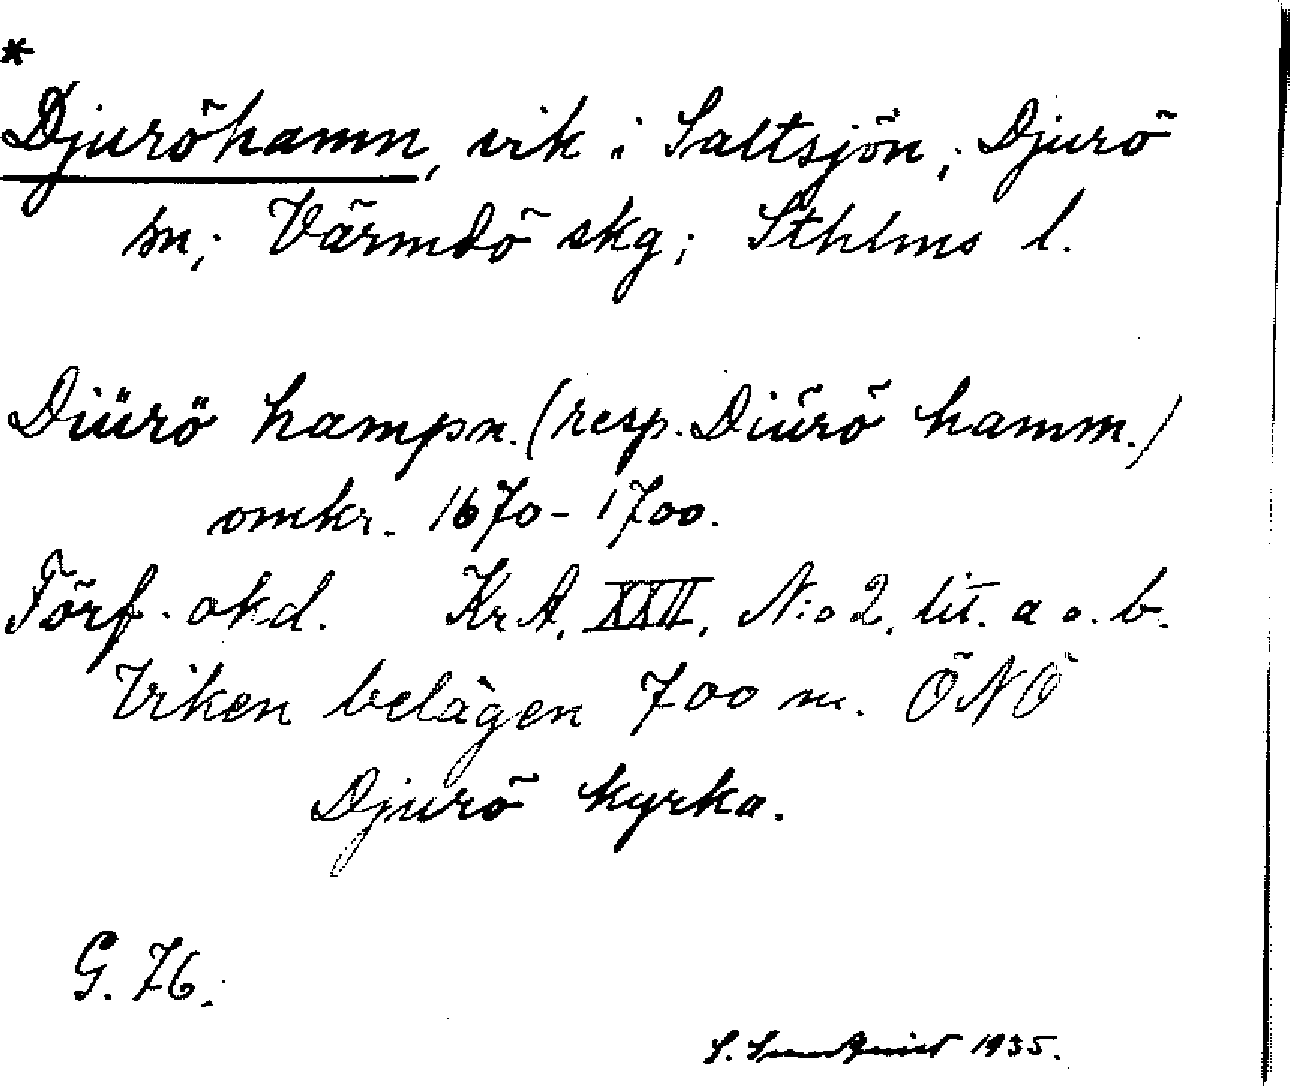 *
Djuröhamn, vik i Saltsjön; Djurö
sn; Värmdö skg; Sthlms l.
Diürö hampn. (resp. Diürö hamm.)
omkr. 1670-1700.
Förf. okd. KrA. XXII, N:o 2. lit. a o. b.
Viken belägen 700 m. ÖNÖ
Djurö kyrka.
G. 76.
S. Sundquist 1935.